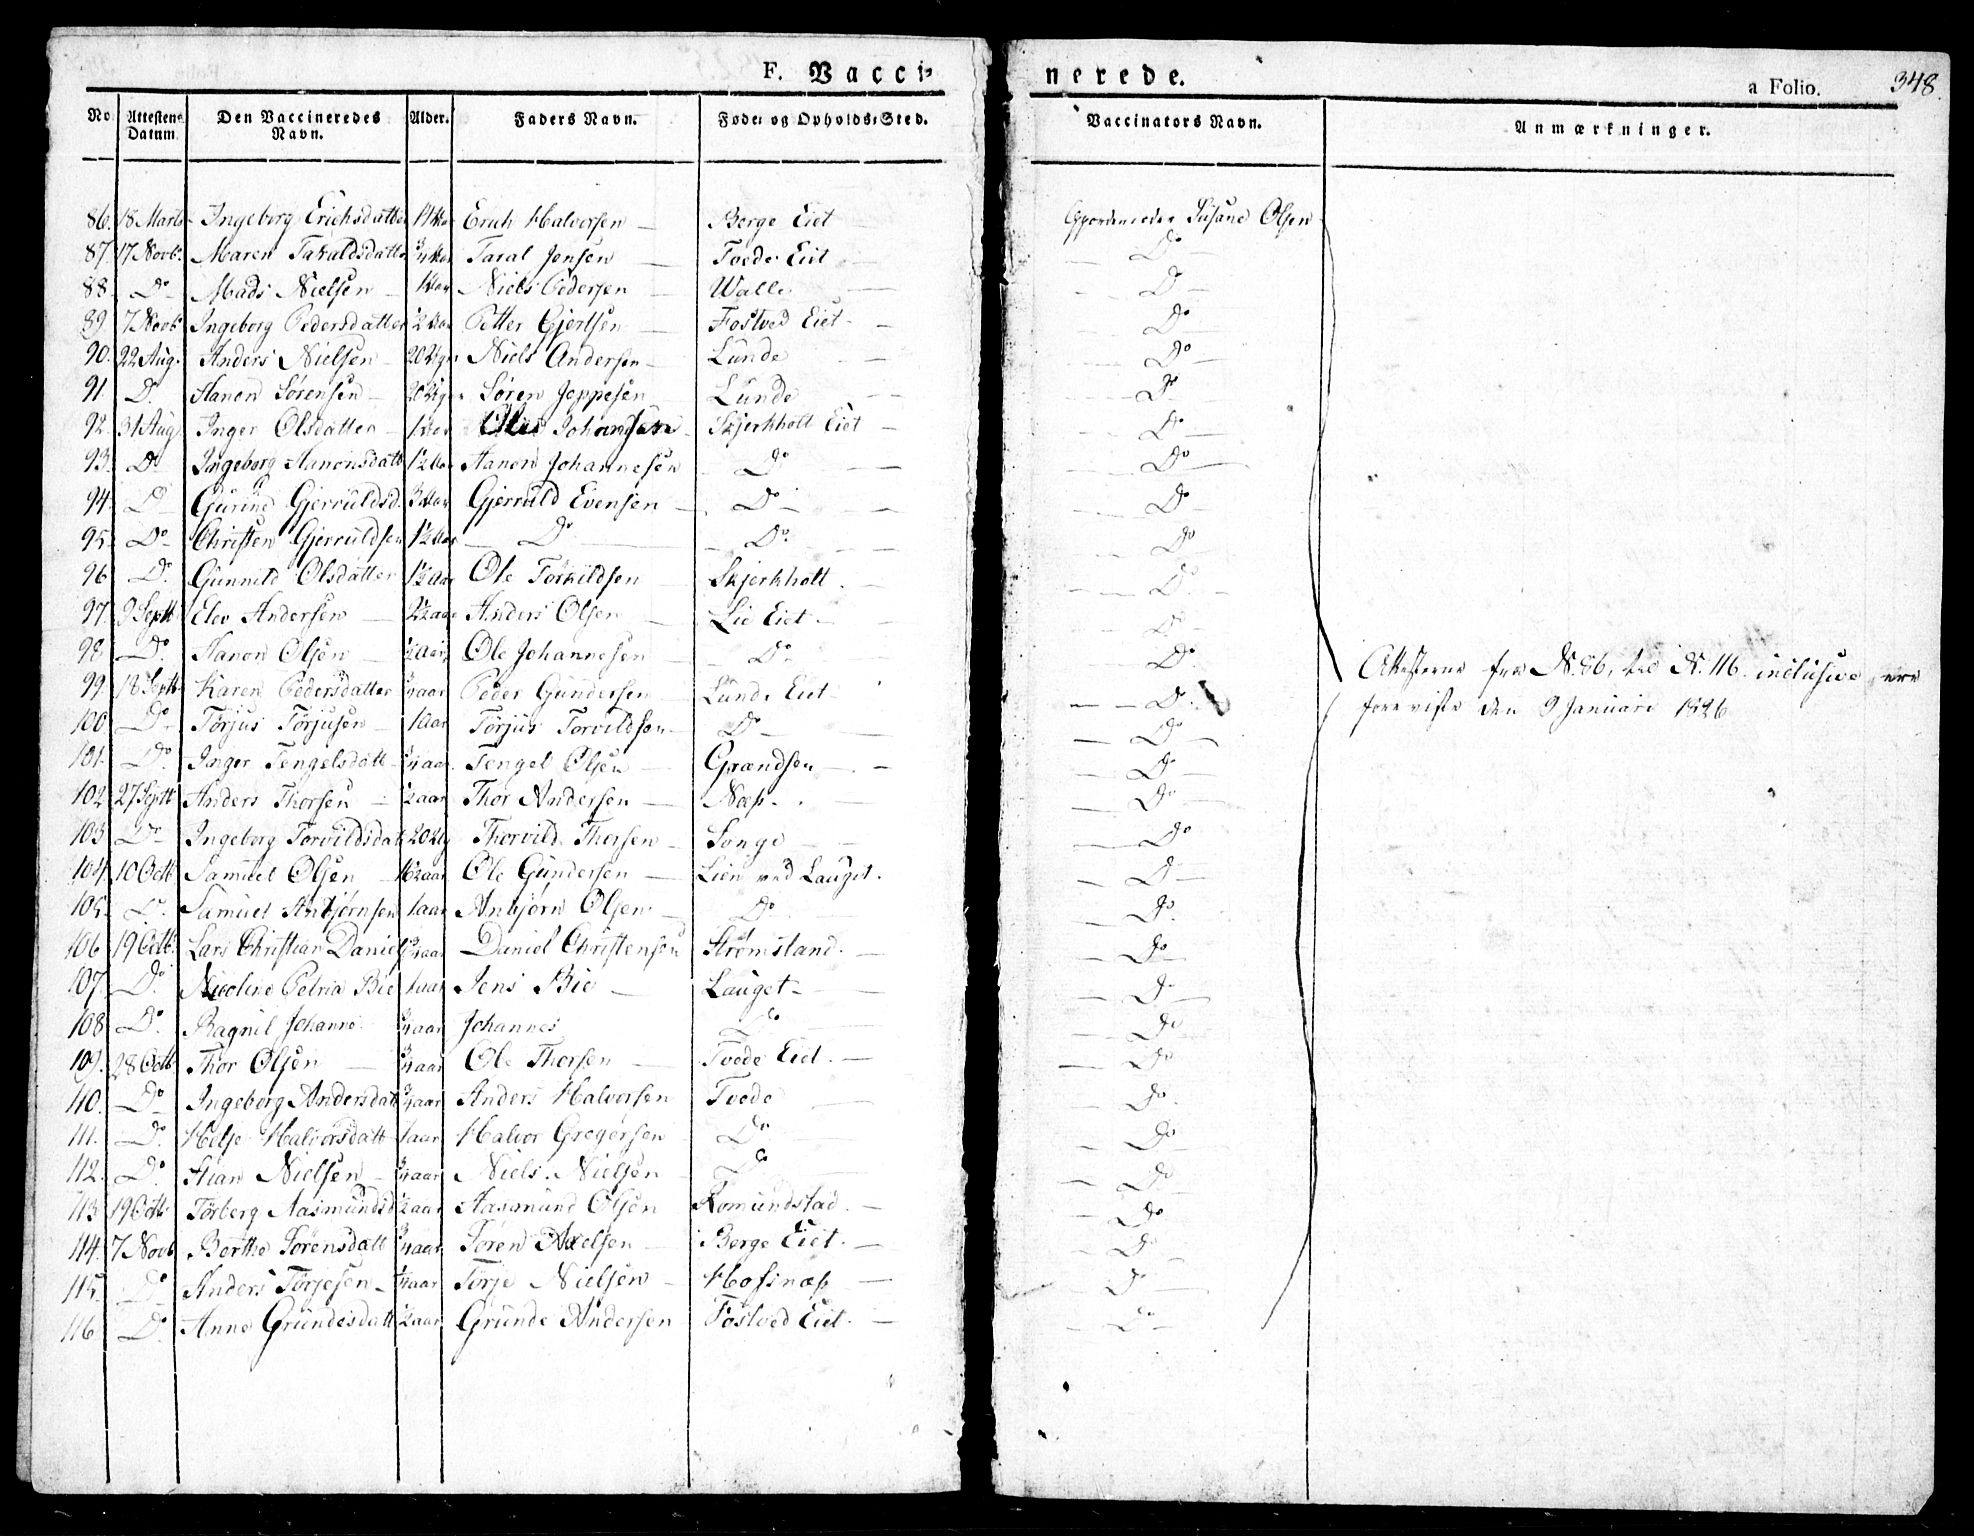 F. Vacci-
nerede.
a Folio. 348.
No Attestens Datum. Den Vaccineredes Navn. Alder. Faders Navn. Føde- og Opholds-Sted. Vaccinators Navn. Anmærkninger.
86. 18 Marts Ingeborg Erichsdatter Erich Halvorsen Berge Eiet Susane Olsen
87. 17 Novb. Maren Taraldsdatter 3/4 Aar Taral Jensen Tvede Eiet Do
88. Do Mads Nielsen 1 Aar Niels Pedersen Walle Do
89. 7 Novb. Ingeborg Pedersdatter 1/2 Aar Petter Gjertsen Fostved Eiet Do
90. 22 Aug. Anders Nielsen 20 Uger Niels Andersen Lunde Do
91. Do Hanon Sørensen 20 Uger Søren Jeppesen Lunde Do
92. 31 Aug. Inger Olsdatter 1 Aar Ole Johansen Skjerkholt Eiet Do
93. Do Ingeborg Aanonsdatt 1 1/2 Aar Aanon Johannesen Do Do
94. Do Gurine Gjeruldsd. 3 Aar Gjerruld Evensen Do Do
95. Do Christen Gjerruldsen 1 1/2 Aar Do Do Do
96. Do Gunnild Olsdatter 1 1/2 Aar Ole Torkildsen Skjerkholt Do
97. 9 Septb Elev Andersen 2 1/2 aar Anders Olsen Lie Eiet Do
98. Do Hanon Olsen 1/2 Aar Ole Johannesen Do Do
99. 18 Septb Karen Pedersdatter 3/4 aar Peder Gundersen Lunde Eiet Do
100. Do Torjus Torjusen 1 Aar Torjus Torvildsen Do Do
101. Do Inger Tengelsdatt 3/4 aar Tengel Olsen Grændsen Do
102. 27 Septb Anders Thorsen 1/2 aar Thor Andersen Næs Do
103. Do Ingeborg Torvildsdat 20 Ug Thorvild Thorsen Songe Do
104. 10 Octb Samuel Olsen 1 1/2 aar Ole Gundersen Lien ved Lauget Do
105. Do Samuel Anbjørnsen 1 aar Anbjørn Olsen Do Do
106. 19 Octb Lars Christian Daniels 3/4 aar Daniel Christensen Strømsland Do
107. Do Nicoline Petria Bie 1 aar Jens Bie Lauget Do
108. Do Ragnil Johanne 3/4 aar Johannes Do Do
109. 28 Octb Thor Olsen 3/4 aar Ole Thorsen Tvede Eiet Do
110. Do Ingeborg Andersdatt 3/4 aar Anders Halvorsen Tvede Do
111. Do Helje Halvorsdatt 1 aar Halvor Gregersen Do Do
112. Do Stian Nielsen 3/4 aar Niels Nielsen Do Do
113. 19 Octb Torberg Aasmundsd 1/2 aar Aasmund Olsen Romundstad Do
114. 7 Novb Berthe Sørensdatt 3/4 aar Søren Axelsen Berge Eiet Do
115. Do Anders Torjesen 1/2 aar Torje Nielsen Hofsnæs Do
116. Do Anne Grundesdatt 1/2 aar Grunde Andersen Fostved Eiet Do
Attesterne fra N. 86, til N. 116 inclusive, ere
foreviste den 9 Januari 1826